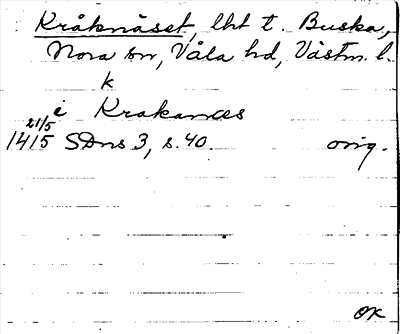 Kråknäset, lht t. Buska,
Nora sn, Våla hd, Västm. l.
k
i Krakanæs
21/5
1415 SDns 3, s. 40. orig.
OK